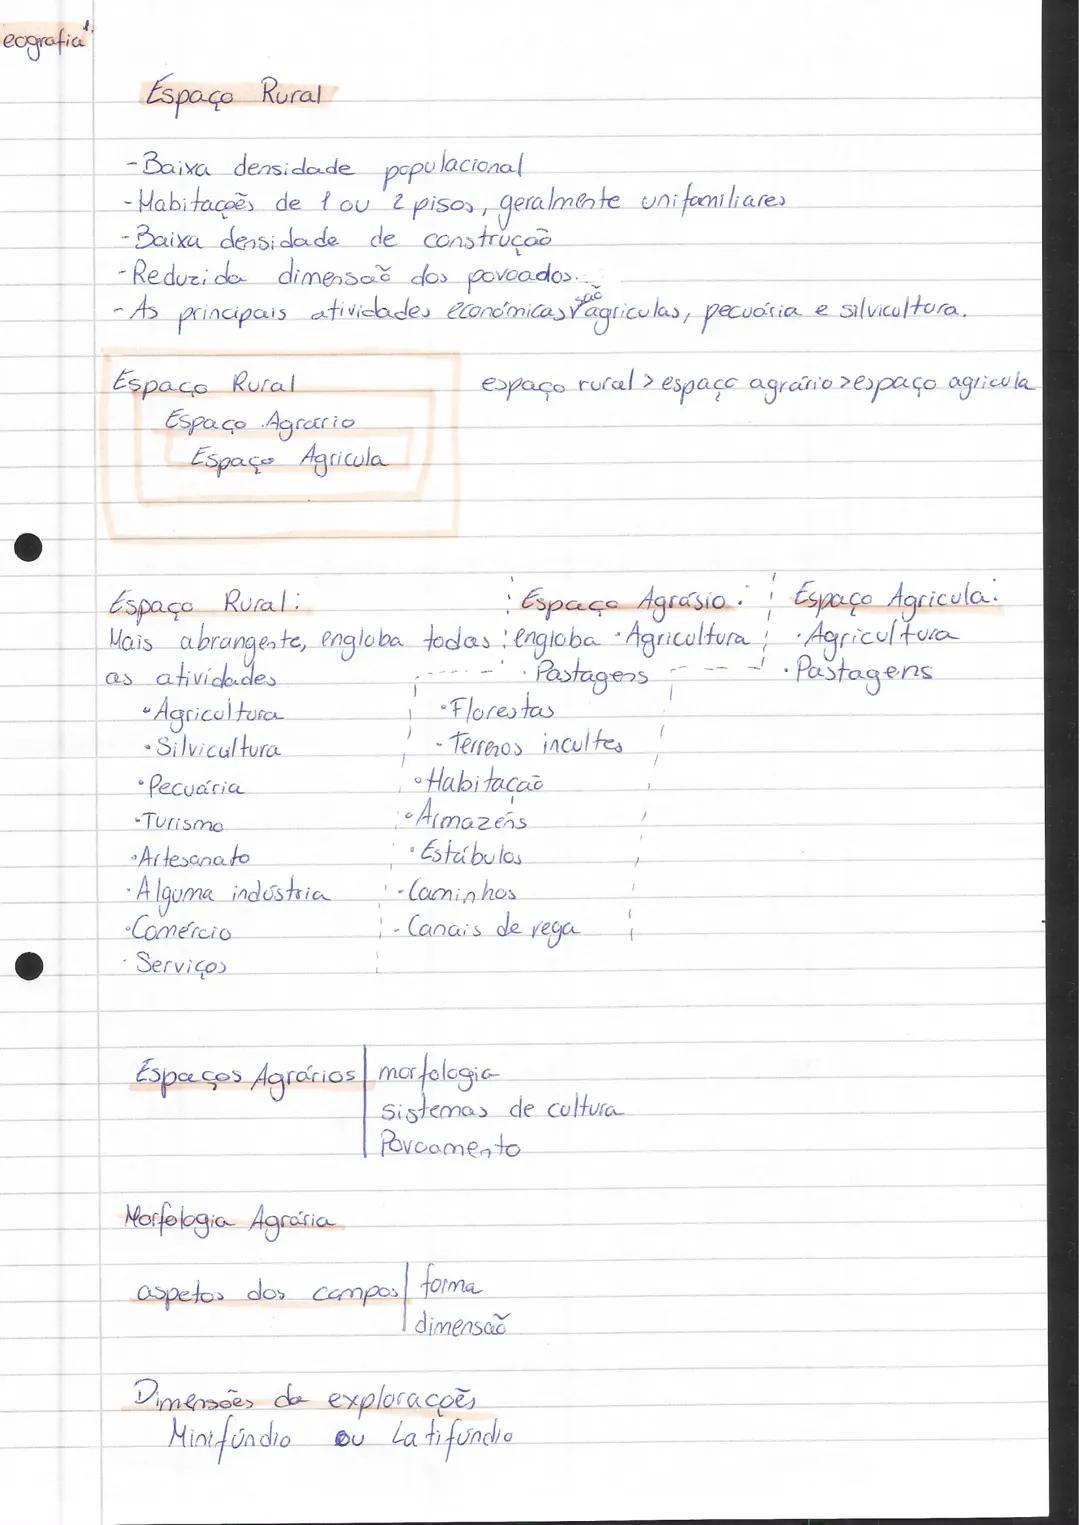 eografia
Espaço Rural
- Baixa densidade populacional
- Habitações de 1 ou 2 pisos, geralmente unifamiliares
- Baixa densidade de construção
- Reduzida dimensão dos povoados.
são
- As principais atividades económicas agriculas, pecuária e silvicultura.
Espaço Rural
Espaço Agrário
Espaço Agricula
espaço rural > espaço agrário > espaço agricula
Espaço Rural:
Mais abrangente, engloba todas
as atividades
• Agricultura
• Silvicultura
• Pecuária
- Turismo
• Artesanato
• Alguma indústria
• Comércio
• Serviços
Espaço Agrário:
engloba • Agricultura
• Pastagens
• Florestas
- Terrenos incultes
• Habitação
• Armazéns
• Estábulos
- Caminhos
- Canais de rega
Espaço Agricula:
• Agricultura
• Pastagens
Espaços Agrários
morfologia
sistemas de cultura
Povoamento
Morfologia Agrária
aspetos dos campos
forma
dimensão
Dimensões da explorações
Minifúndio ou Latifúndio